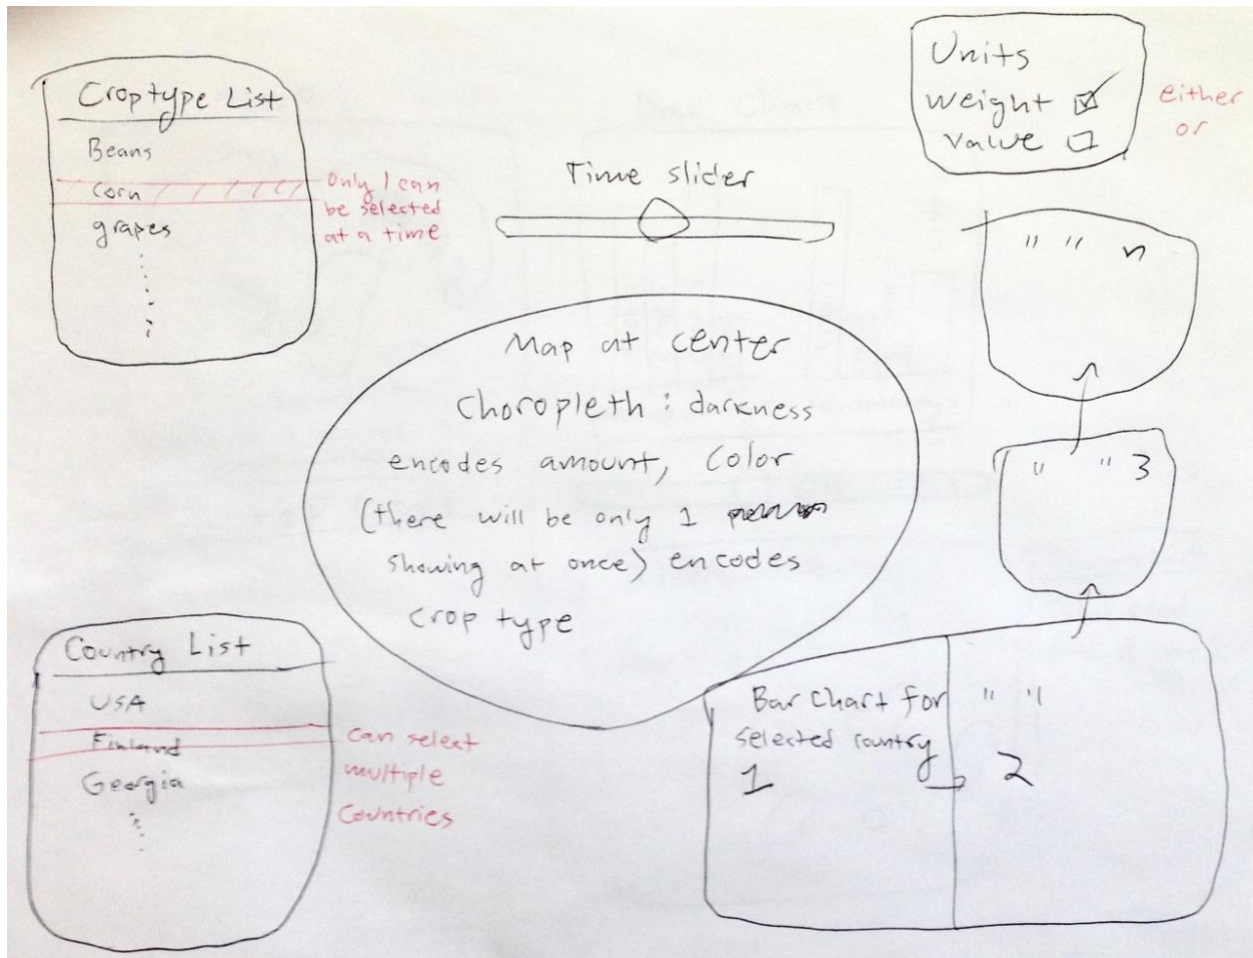 Crop type List
Beans
Corn
grapes
Only 1 can
be selected
at a time
Time slider
Units
weight
value
either
or
" " n
" " 3
Map at center
Choropleth : darkness
encodes amount, Color
(there will be only 1
showing at once) encodes
crop type
Country List
USA
Finland
Georgia
can select
multiple
Countries
Bar Chart for
selected country
1
" "
2